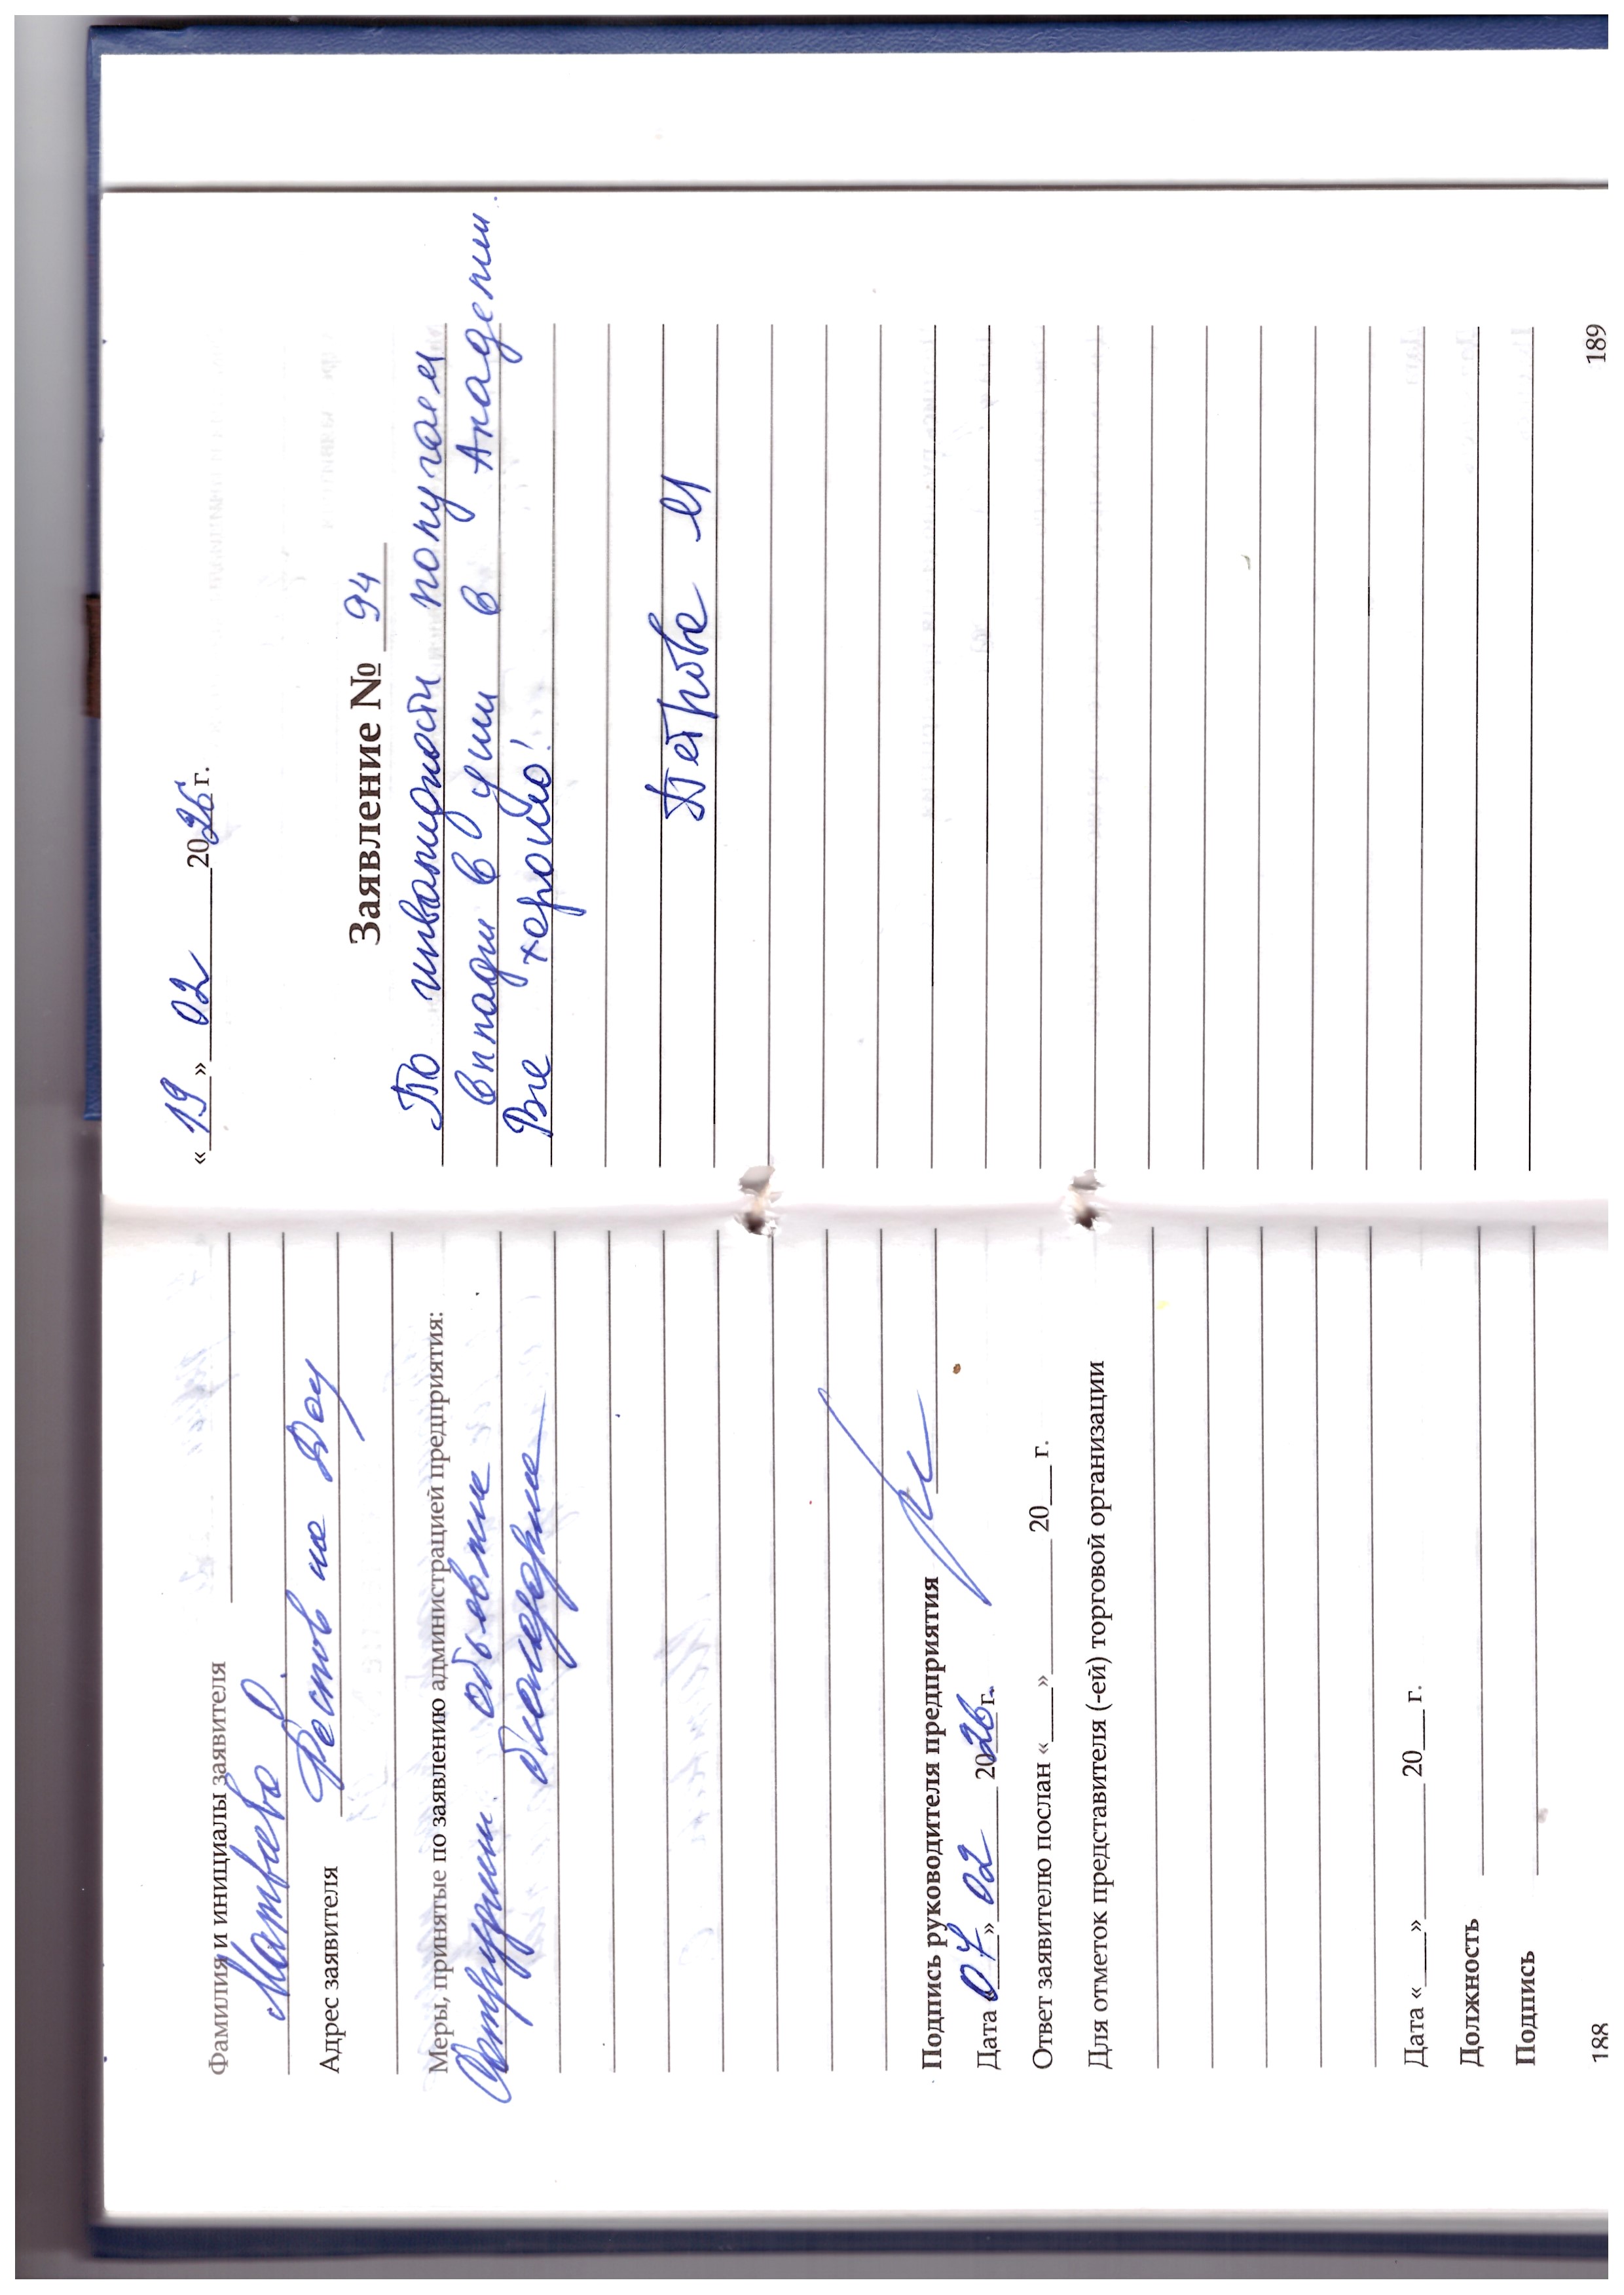 Фамилия и инициалы заявителя
Матвиева О.
Адрес заявителя Ростов на Дону
Меры, принятые по заявлению администрацией предприятия:
объявлена
Подпись руководителя предприятия
Дата «07» 02 2026г.
Ответ заявителю послан «___»________ 20___ г.
Для отметок представителя (-ей) торговой организации
Дата «____»__________ 20___ г.
Должность
Подпись
188
« 19 » 02 2026 г.
Заявление № 94
По инвалидности получаем
вклади в уши в Академии.
Все хорошо!
Петрова М
189